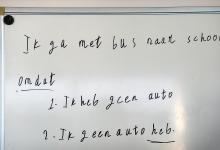 Ik ga met bus naar school
omdat
1. Ik heb geen auto
2. Ik geen auto heb.